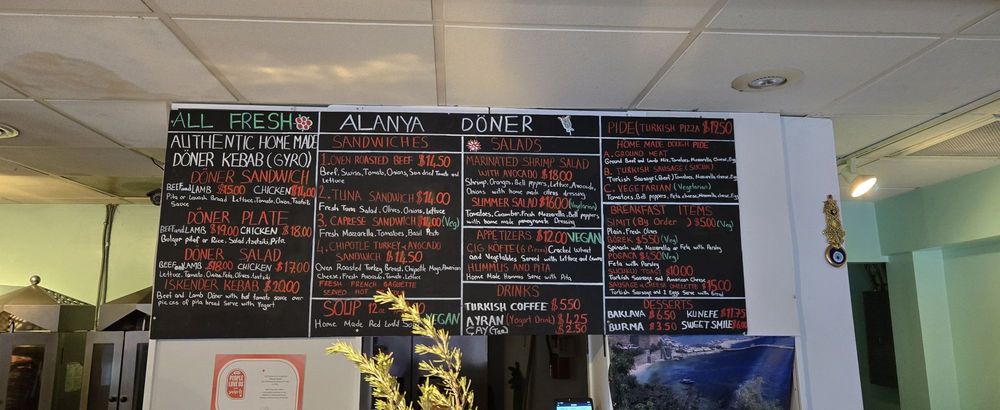 ALL FRESH
AUTHENTIC HOME MADE
DÖNER KEBAB (GYRO)
DÖNER SANDWICH
BEEF and LAMB $15.00 CHICKEN $14.00
Pita or Lavash Bread Lettuce, Tomato, Onion, Tzatziki,
Sauce
DÖNER PLATE
BEEF and LAMB $19.00 CHICKEN $18.00
Bulgar pilaf or Rice, Salad, tzatziki, Pita
DÖNER SALAD
BEEF and LAMB $18.00 CHICKEN $17.00
Lettuce, Tomato,
ISKENDER KEBAB $20.00
Beef and Lamb Döner with hot tomato sauce over
pieces of pita bread Serve with Yogurt
ALANYA DÖNER
SANDWICHES
1. OVEN ROASTED BEEF $14.50
Beef, Swiss, Tomato, Onions, Sun dried Tomato and
Lettuce
2. TUNA SANDWICH $14.00
Fresh Tuna Salad, Olives, Onions, Lettuce
3. CAPRESE SANDWICH (Veg)
Fresh Mozzarella, Tomatoes, Basil Pesto
4. CHIPOTLE TURKEY & AVOCADO
SANDWICH $14.50
Oven Roasted Turkey Breast, Chipotle Mayo, American
Cheese, Fresh Avocado, Tomato, Lettuce
FRESH FRENCH BAGUETTE
SERVED HOT
SOUP 12 oz
Home Made Red Lentil VEGAN
SALADS
MARINATED SHRIMP SALAD
WITH AVOCADO $18.00
Shrimp, Oranges, Bell peppers, Lettuce, Avocado,
Onions with home made citrus dressing
SUMMER SALAD $16.00 (Vegetarian)
Tomatoes, Cucumber, Fresh Mozzarella, Bell peppers
with home made pomegranate Dressing
APPETIZERS $12.00 VEGAN
CIG KÖFTE (6 Pieces) Cracked Wheat
and Vegetables Served with Lettuce and
HUMMUS AND PITA
Home Made Hummus Serve with Pita
DRINKS
TURKISH COFFEE $5.50
AYRAN (Yogurt Drink) $4.25
ÇAY (Tea) $2.50
PIDE (TURKISH PIZZA) $19.50
HOME MADE DOUGH PIDE
A. GROUND MEAT
Ground Beef and Lamb Mix, Tomatoes, Mozzarella, Cheese, Egg
B. TURKISH SAUSAGE (SUCUK)
Turkish Sausage (Beef) Tomatoes, Mozzarella Cheese, Egg
C. VEGETARIAN (Vegetarian)
Tomatoes, Bell peppers, Feta cheese, Mozzarella, Egg
BREAKFAST ITEMS
SIMIT $5.00 (Veg)
Plain, Fresh Olives
BÖREK $5.50 (Veg)
Spinach with Mozzarella or Feta with Parsley
POGACA $4.50 (Veg)
Feta with Parsley
SUCUKLU TOAST $10.00
Turkish Sausage and American Cheese
SAUSAGE or CHEESE OMELETTE $15.00
Turkish Sausage and 2 Eggs Serve with Bread
DESSERTS
BAKLAVA $6.50 KUNEFE $11.75
BURMA $3.50 SWEET SMILE
PEOPLE
LOVE US
yelp